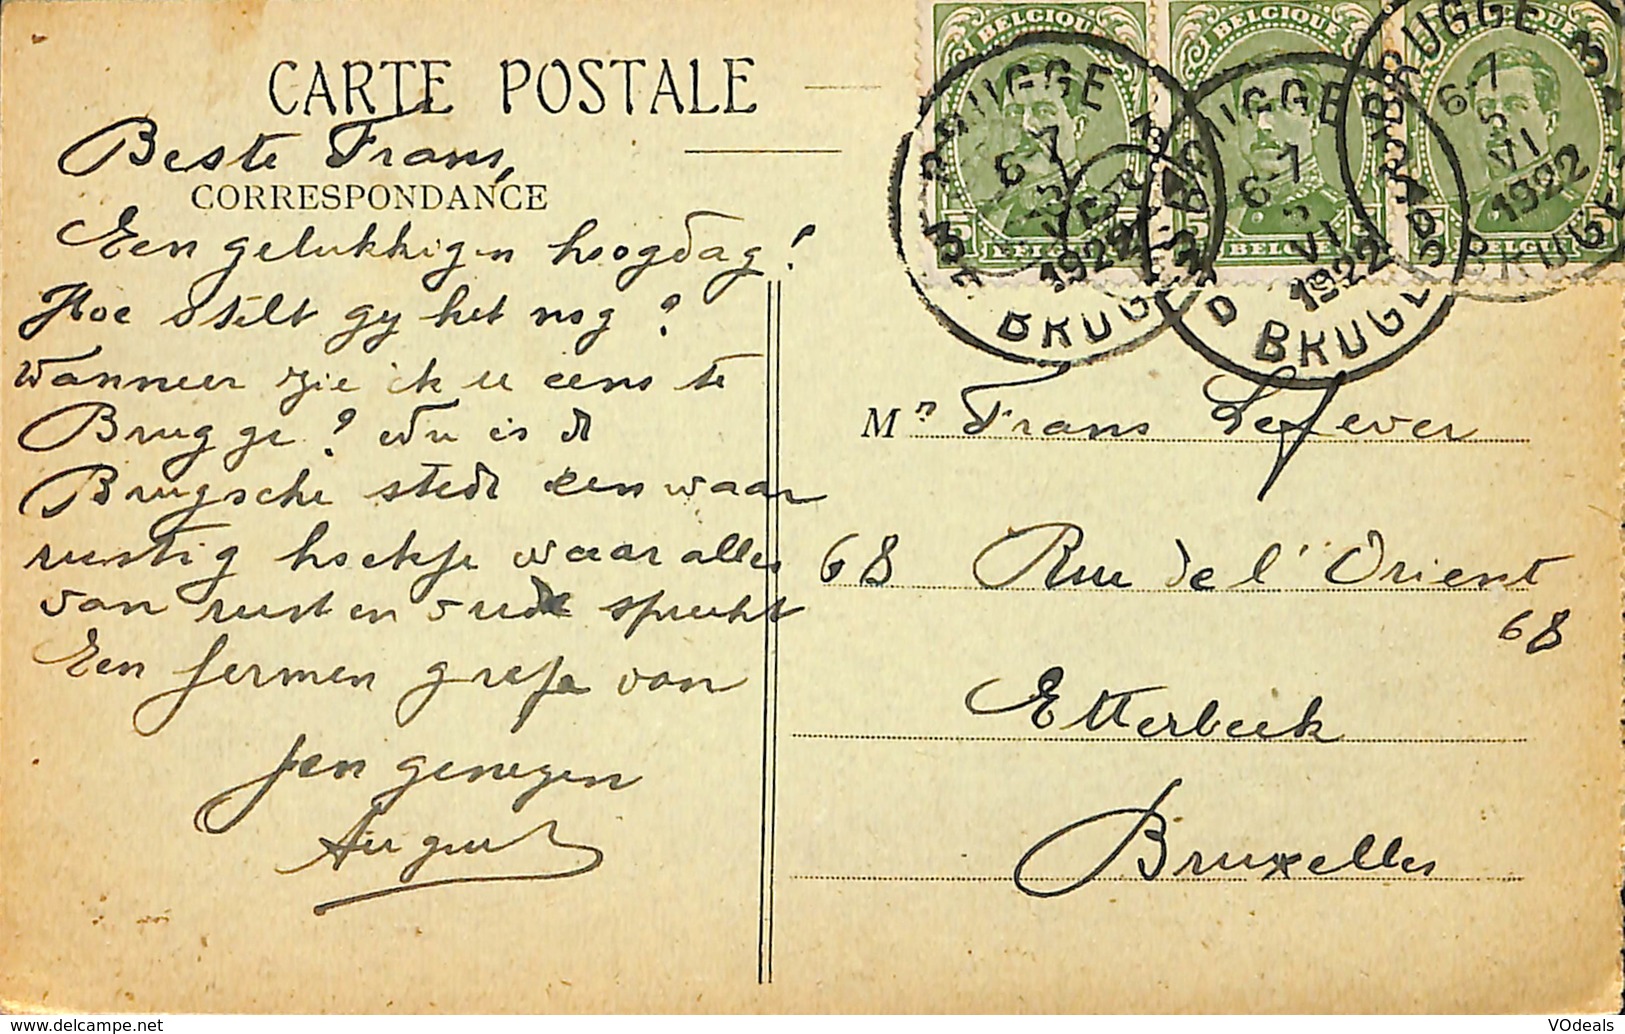 CARTE POSTALE
Beste Frans,
CORRESPONDANCE
Een gelukkigen hoogdag!
Hoe stelt gy het nog?
Wanneer zie ik u eens te
Brugge? Nu is de
Brugsche stede een waar
rustig hoekje waar alles
van rust en vrede spreekt
Een fermen groet van
genegen
August
BELGIQUE
BELGIQUE
BELGIQUE
BELGIE
BELGIE
BELGIE
BRUGGE
6-7
VI
1922
BRUGES
BRUGGE
6-7
VI
1922
BRUGES
BRUGGE
6-7
5
VI
1922
BRUGES
Mr Frans Lefever
68 Rue de l'Orient
68
Etterbeek
Bruxelles
© VOdeals - delcampe.net
VOdeals